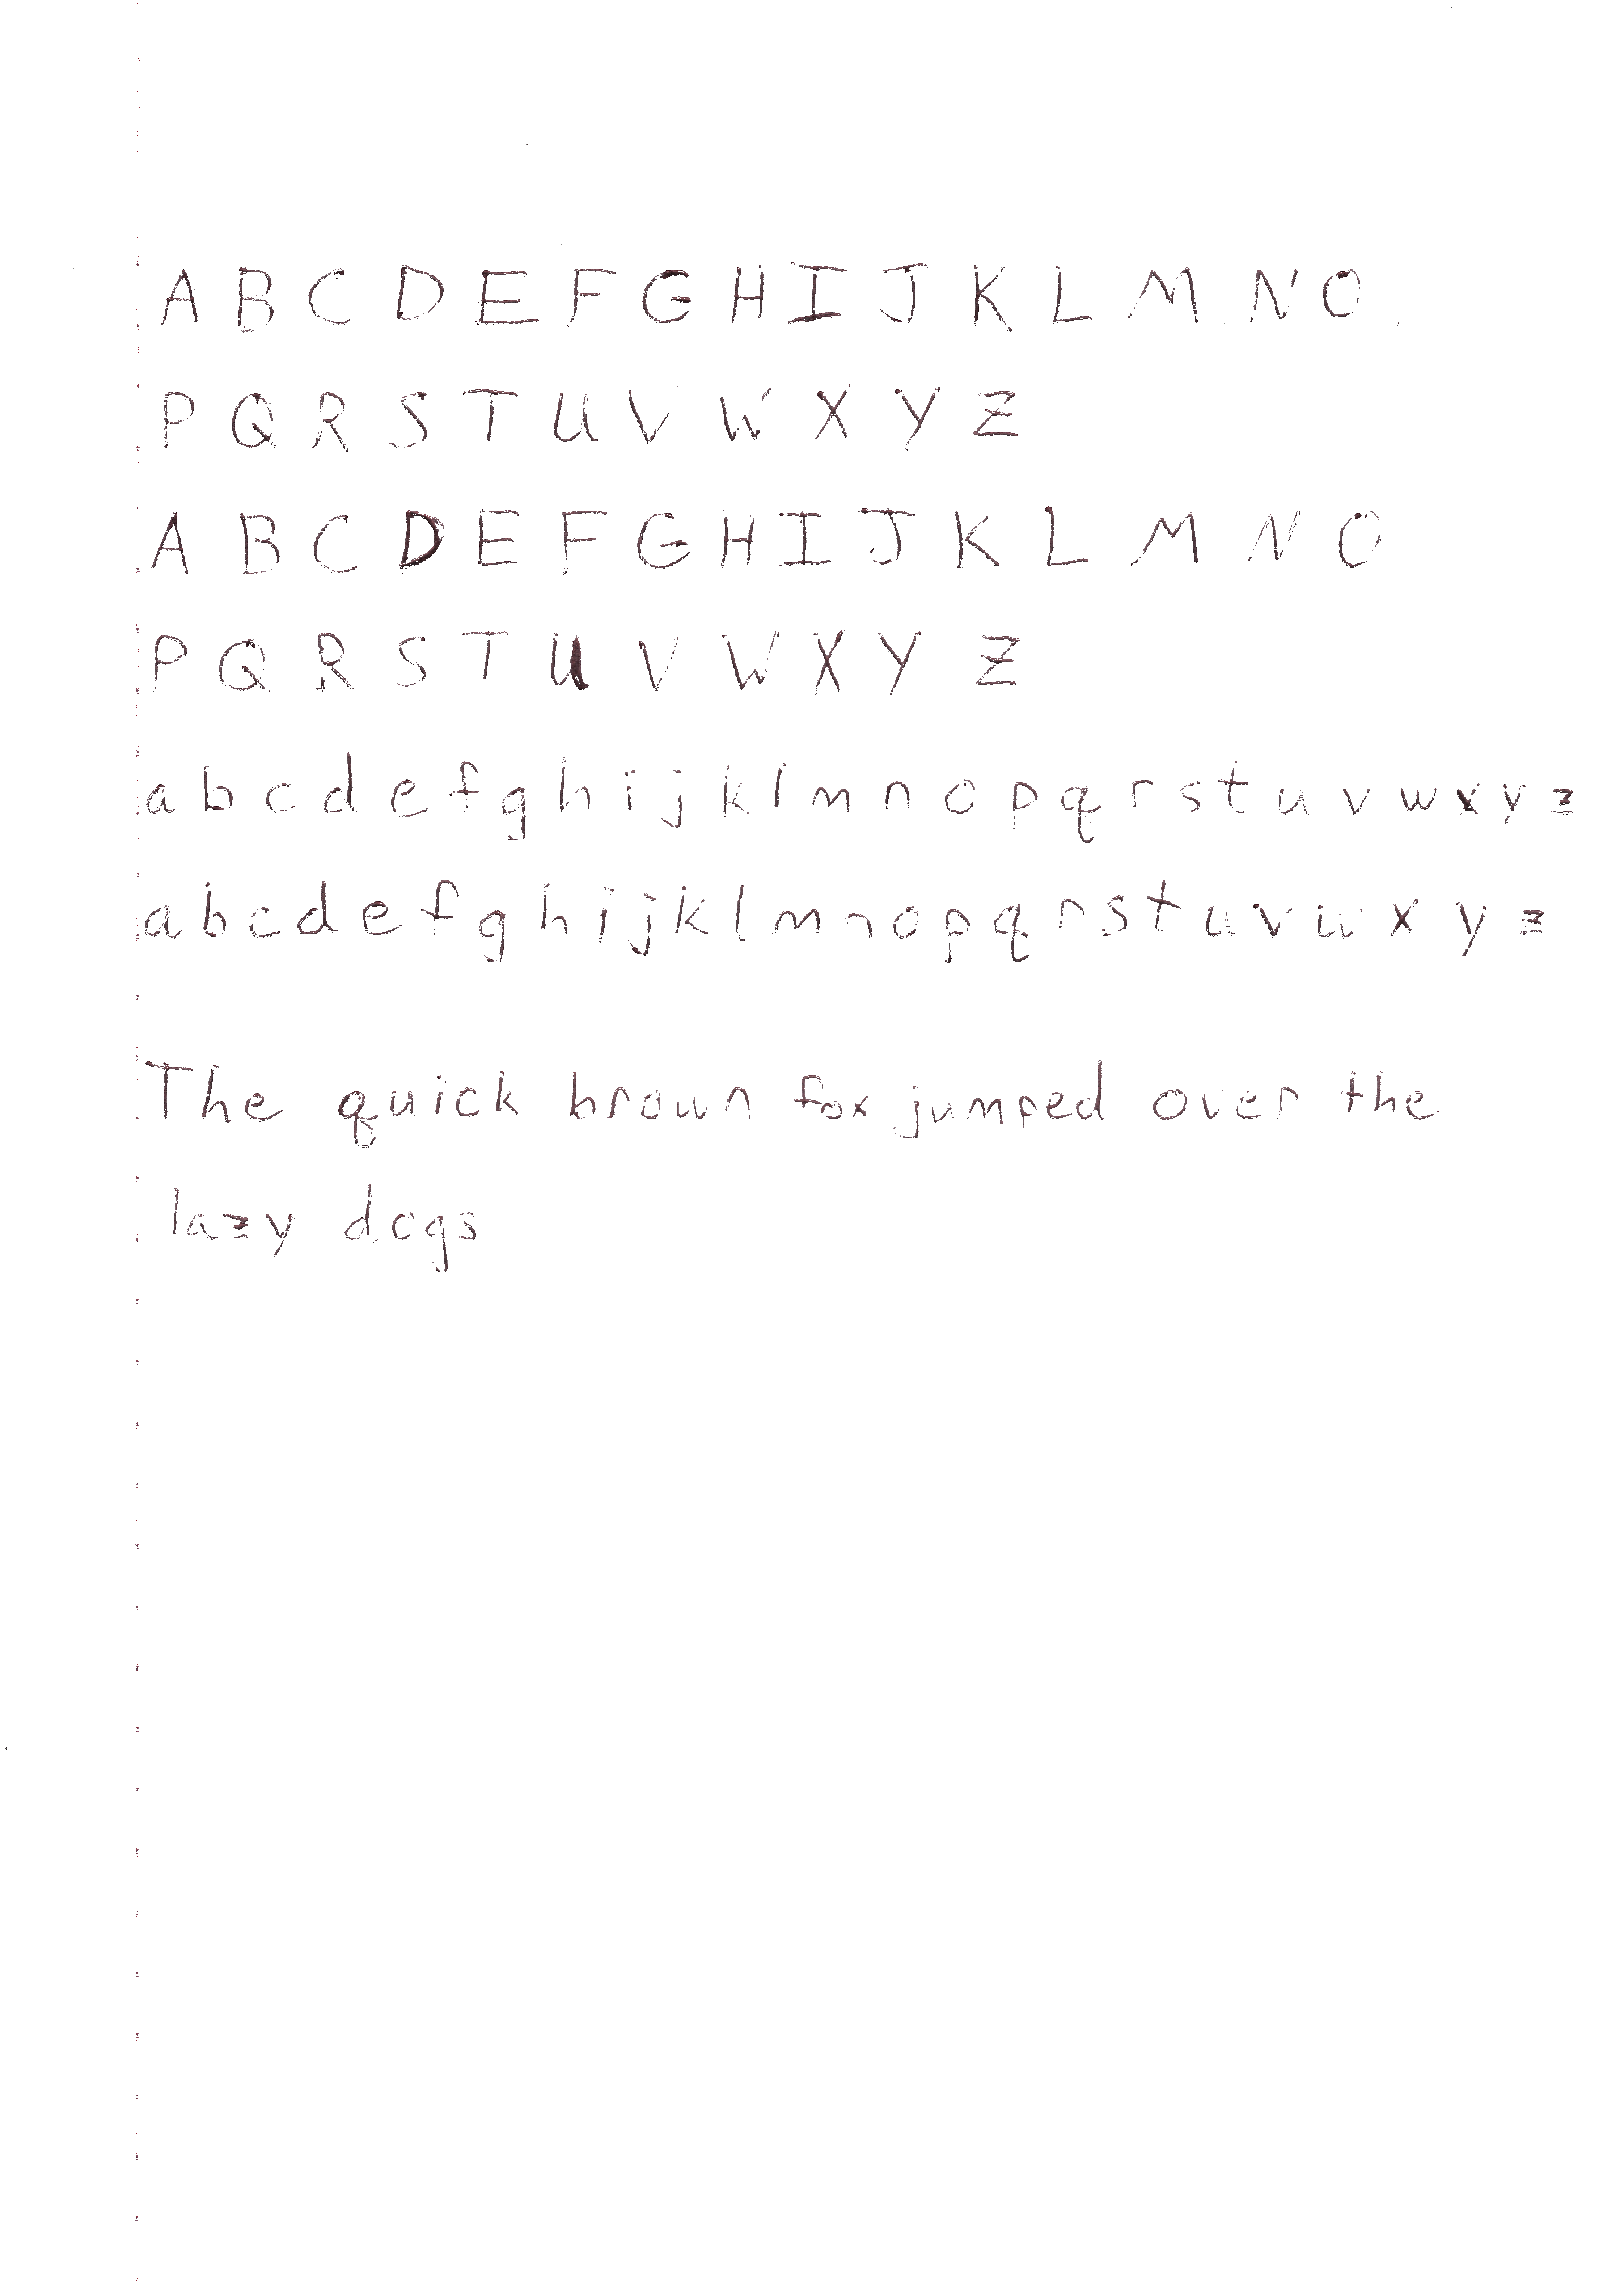 A B C D E F G H I J K L M N O
P Q R S T U V W X Y Z
A B C D E F G H I J K L M N O
P Q R S T U V W X Y Z
a b c d e f g h i j k l m n o p q r s t u v w x y z
a b c d e f g h i j k l m n o p q r s t u v w x y z
The quick brown fox jumped over the
lazy dogs